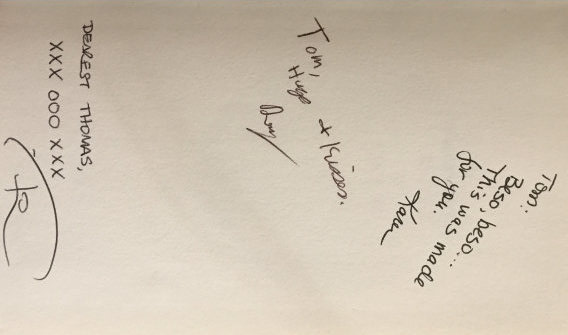 Tom:
Beso, beso...
This was made
for you.
Kara
Tom,
Hugs + Kisses.
DEAREST THOMAS,
XXX OOO XXX